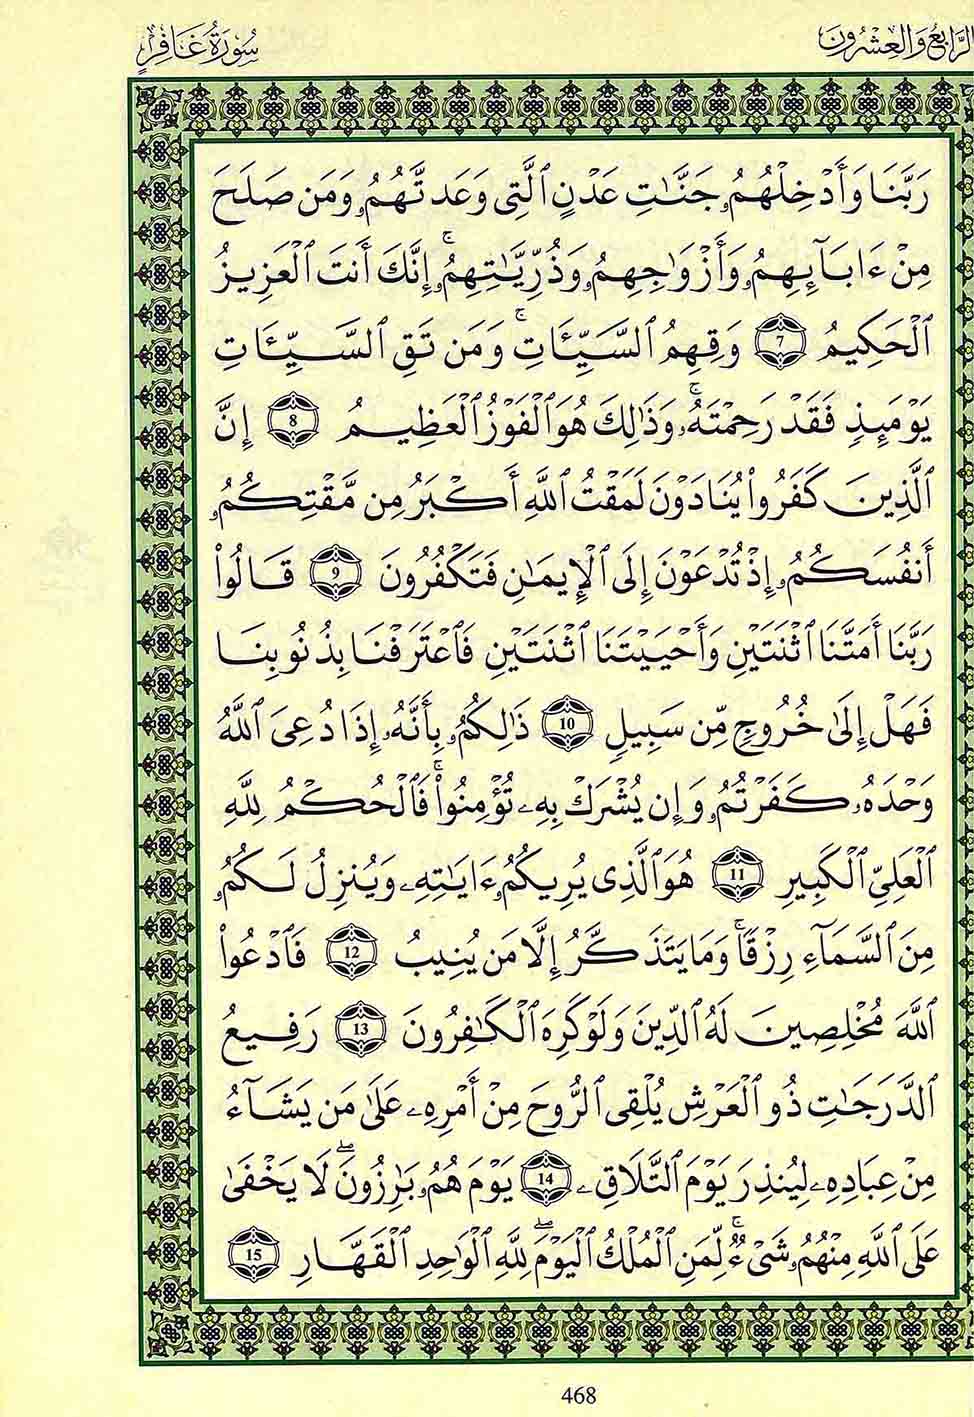 الرَّابِعُ وَالْعِشْرُونَ
سُورَةُ غَافِرٍ
رَبَّنَا وَأَدْخِلْهُمُۥ جَنَّٰتِ عَدْنٍ ٱلَّتِى وَعَدتَّهُمُۥ وَمَن صَلَحَ
مِنْ ءَابَآئِهِمُۥ وَأَزْوَٰجِهِمُۥ وَذُرِّيَّٰتِهِمُۥٓ ۚ إِنَّكَ أَنتَ ٱلْعَزِيزُ
ٱلْحَكِيمُ 7 وَقِهِمُ ٱلسَّيِّـَٔاتِ ۚ وَمَن تَقِ ٱلسَّيِّـَٔاتِ
يَوْمَئِذٍ فَقَدْ رَحِمْتَهُۥ ۚ وَذَٰلِكَ هُوَ ٱلْفَوْزُ ٱلْعَظِيمُ 8 إِنَّ
ٱلَّذِينَ كَفَرُواْ يُنَادَوْنَ لَمَقْتُ ٱللَّهِ أَكْبَرُ مِن مَّقْتِكُمُۥ
أَنفُسَكُمُۥ إِذْ تُدْعَوْنَ إِلَى ٱلْإِيمَٰنِ فَتَكْفُرُونَ 9 قَالُواْ
رَبَّنَا أَمَتَّنَا ٱثْنَتَيْنِ وَأَحْيَيْتَنَا ٱثْنَتَيْنِ فَٱعْتَرَفْنَا بِذُنُوبِنَا
فَهَلْ إِلَىٰ خُرُوجٍ مِّن سَبِيلٍ 10 ذَٰلِكُمُۥ بِأَنَّهُۥ إِذَا دُعِىَ ٱللَّهُ
وَحْدَهُۥ كَفَرْتُمُۥ وَإِن يُشْرَكْ بِهِۦ تُؤْمِنُواْ ۚ فَٱلْحُكْمُ لِلَّهِ
ٱلْعَلِىِّ ٱلْكَبِيرِ 11 هُوَ ٱلَّذِى يُرِيكُمُۥ ءَايَٰتِهِۦ وَيُنزِلُ لَكُمُۥ
مِنَ ٱلسَّمَآءِ رِزْقًا ۚ وَمَا يَتَذَكَّرُ إِلَّا مَن يُنِيبُ 12 فَٱدْعُواْ
ٱللَّهَ مُخْلِصِينَ لَهُ ٱلدِّينَ وَلَوْ كَرِهَ ٱلْكَٰفِرُونَ 13 رَفِيعُ
ٱلدَّرَجَٰتِ ذُو ٱلْعَرْشِ يُلْقِى ٱلرُّوحَ مِنْ أَمْرِهِۦ عَلَىٰ مَن يَشَآءُ
مِنْ عِبَادِهِۦ لِيُنذِرَ يَوْمَ ٱلتَّلَاقِۦ 14 يَوْمَ هُمُۥ بَٰرِزُونَ ۖ لَا يَخْفَىٰ
عَلَى ٱللَّهِ مِنْهُمُۥ شَىْءٌ ۚ لِّمَنِ ٱلْمُلْكُ ٱلْيَوْمَ ۖ لِلَّهِ ٱلْوَٰحِدِ ٱلْقَهَّارِ 15
468